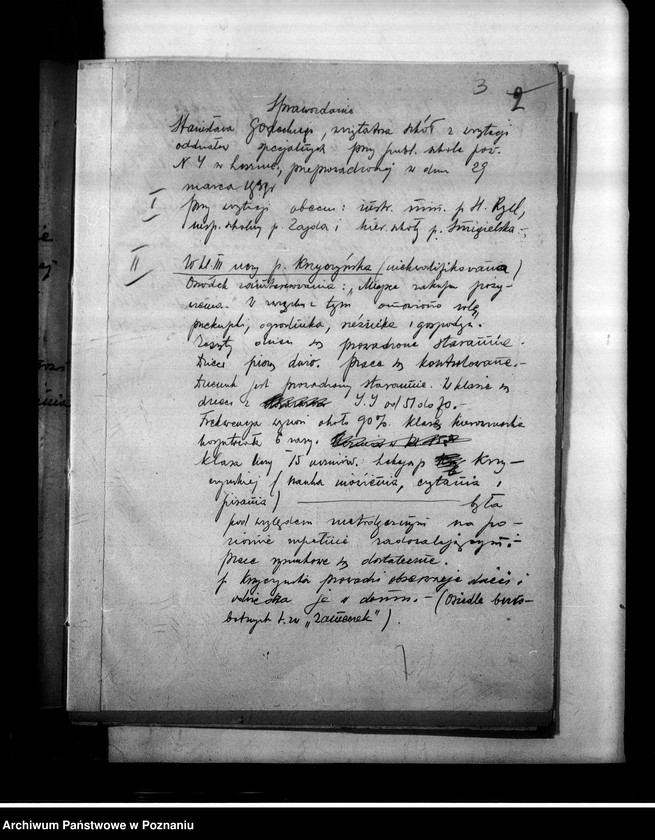 3 2
Sprawozdanie
Stanisława Godeckiego, wizytatora szkół z wizytacji
oddziałów specjalnych przy publ. szkole pow.
N 4 w Lesznie, przeprowadzonej w dniu 29
marca
I przy wizytacji obecni: instr. min. p. H. Ryll,
insp. szkolny p. Zajda i kier. szkoły p. Śmigielska.-
II W kl. III uczy p. Krzyczyńska (niekwalifikowana)
Ośrodek zainteresowania: „Miejsce zakupu pożywienia.
W związku z tym omówiono rolę
przekupki, ogrodnika, rzeźnika i gospodyni".
Zeszyty dzieci są prowadzone starannie.
Dzieci piszą dużo. Prace są kontrolowane.-
Dziennik jest prowadzony starannie. W klasie są
dzieci z I.I od 51 do 70.-
Frekwencja wynosi około 90%. Klasę kierowniczka
hospitowała 6 razy.
Klasa liczy 15 uczniów. Lekcja p. Krzy-
czyńskiej (nauka mówienia, czytania i
pisania) była
pod względem metodycznym na po-
ziomie zupełnie zadowalającym.-
Prace rysunkowe są dostateczne.
p. Krzyczyńska prowadzi obserwacje dzieci i
odwiedza je w domu.- (Osiedle bezro-
botnych t.zw „Zamczek").